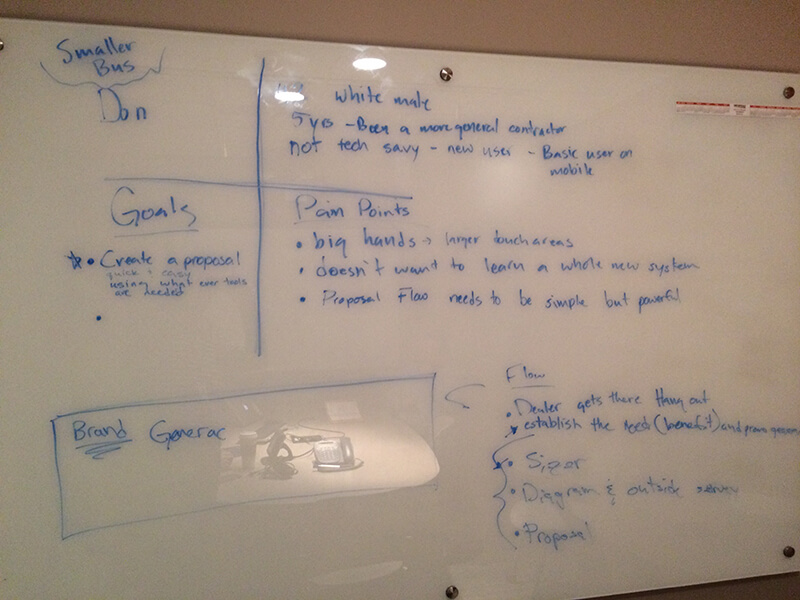 Smaller
Bus
Don
white male
5 yrs - Been a more general contractor
not tech savy - new user - Basic user on
mobile
Goals
• Create a proposal
quick + easy
using what ever tools
are needed
•
Pain Points
• big hands → larger touch areas
• doesn't want to learn a whole new system
• Proposal Flow needs to be simple but powerful
Brand Generac
Flow
• Dealer gets there Hang out
establish the need (benefit) and
• Sizer
• Diagram & outside survey
• Proposal